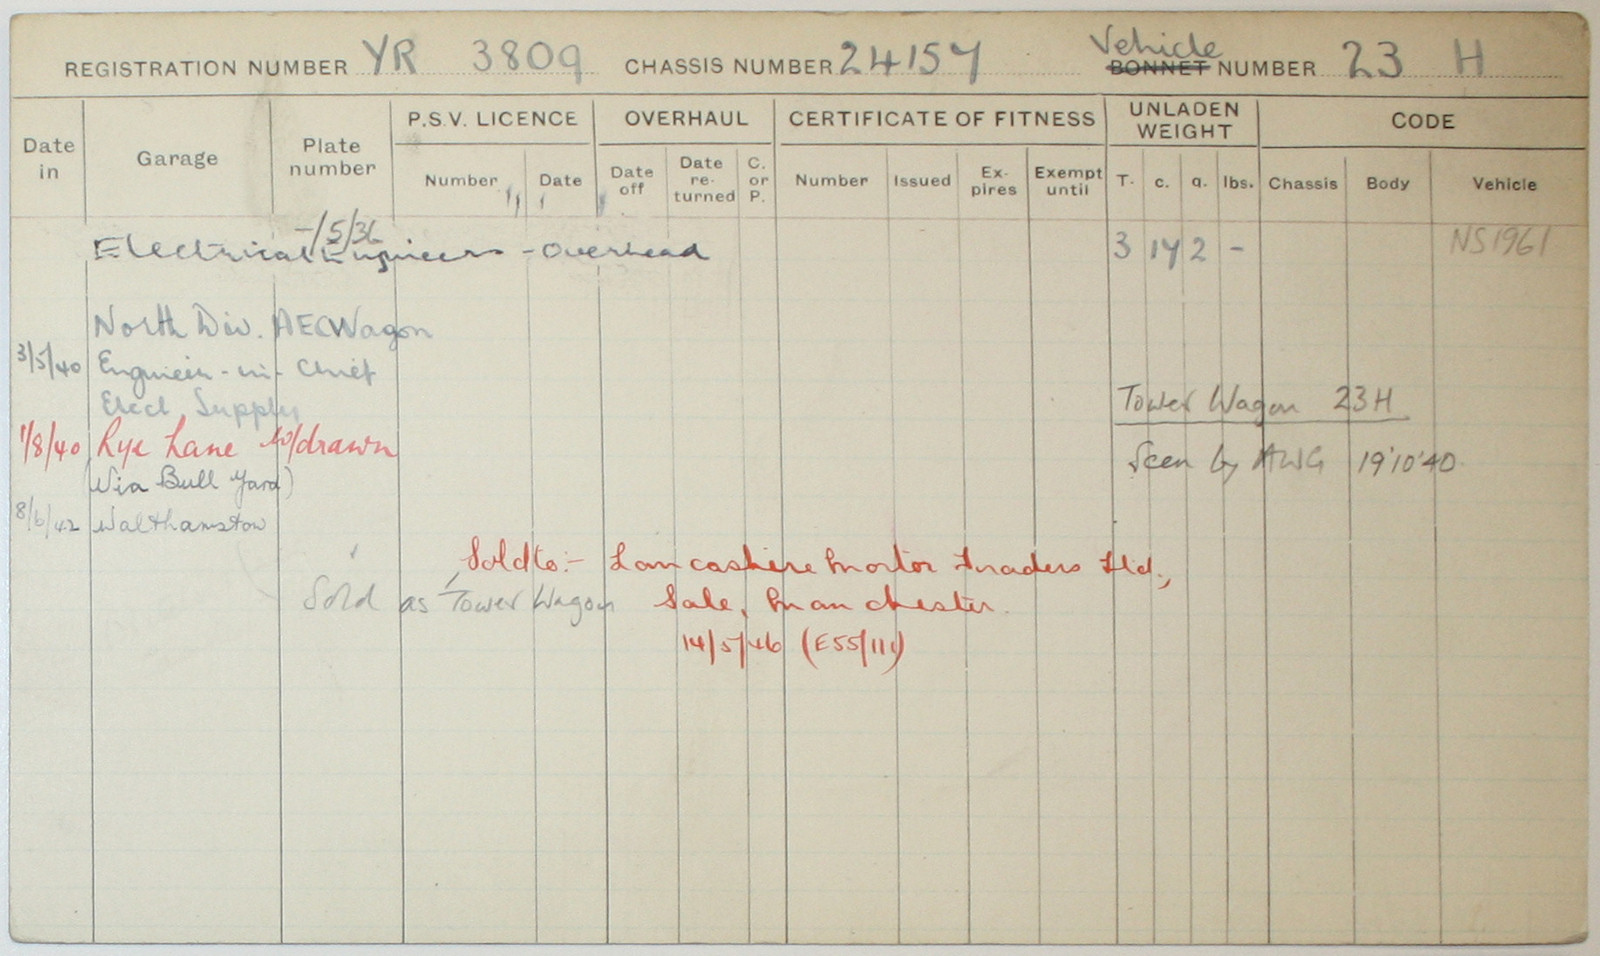 REGISTRATION NUMBER YR 3809 CHASSIS NUMBER 24157 Vehicle BONNET NUMBER 23 H
Date in Garage Plate number P.S.V. LICENCE OVERHAUL CERTIFICATE OF FITNESS UNLADEN WEIGHT CODE
Number Date Date off Date re-turned C. or P. Number Issued Ex-pires Exempt until T. c. q. lbs. Chassis Body Vehicle
-/5/36
Electrical Engineers - Overhead 3 17 2 - NS1961
North Div. AEC Wagon
3/5/40 Engineer-in-Chief
Elect Supply
Tower Wagon 23H
1/8/40 Rye Lane W/drawn
Seen by AWG 19'10'40
(Via Bull Yard)
8/6/42 Walthamstow
Sold to:- Lancashire Motor Traders Ltd.,
Sold as Tower Wagon Sale, Manchester.
14/5/46 (E55/111)